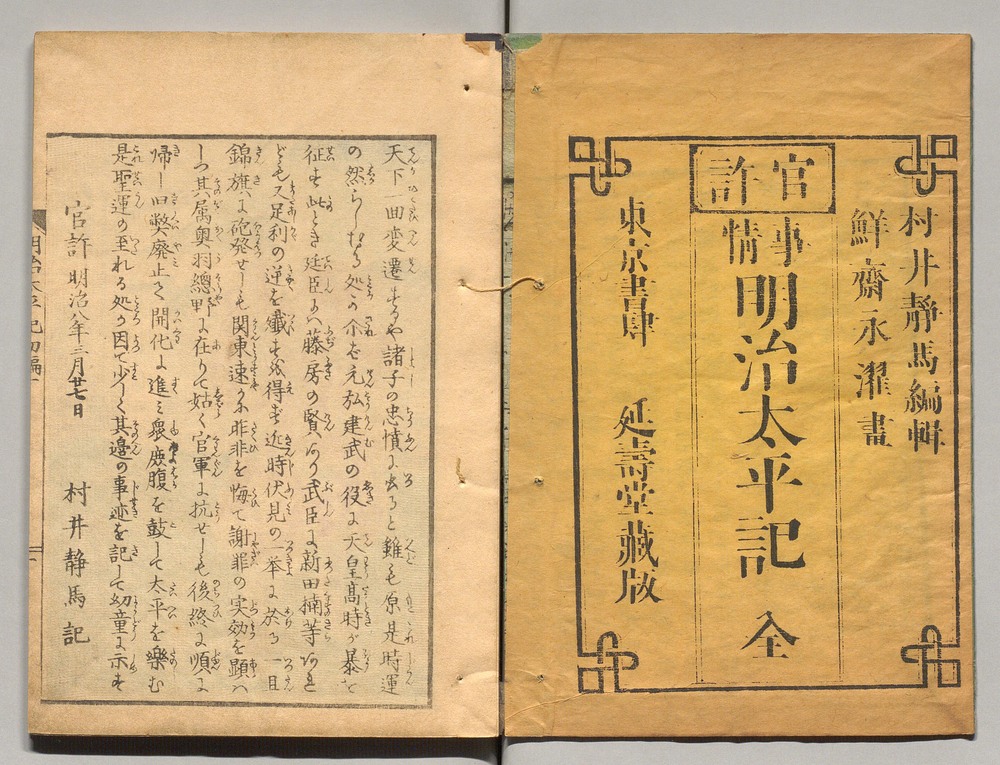 村井靜馬編輯
鮮齋永濯畫
官許
事情
明治太平記 全
東京書肆 延壽堂藏版
天下一回変遷するや諸子の忠憤に出ると雖も原是時運
の然らしむる処か尓ば元弘建武の役に天皇高時が暴を
征す此とき廷臣に藤房の賢あり武臣に新田楠等あれ
ども又足利の逆を殲を得ず近時伏見の一挙に於る一旦
錦旗に砲発せしも関東速かに昨非を悔て謝罪の実効を顕は
しつ其属奥羽總野に在りて姑く官軍に抗せしも後終に順に
帰し旧弊廃止て開化に進み衆庶腹を鼓して太平を樂む
是聖運の至れる処か因て少しく其邊の事迹を記して幼童に示す
官許明治八年三月廿七日 村井静馬記